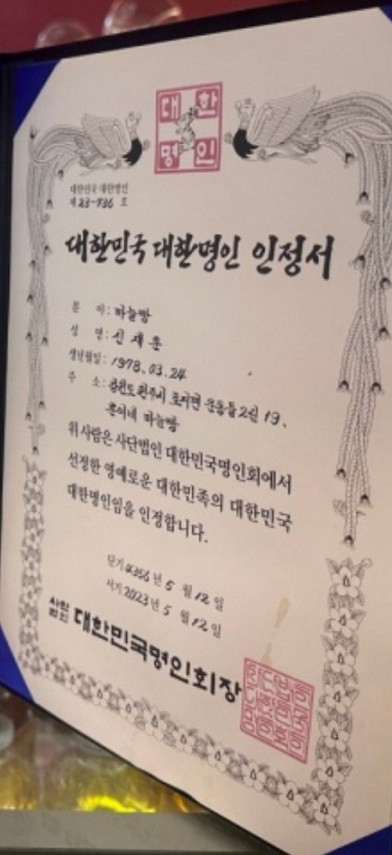 대한
명인
대한민국 대한명인
제 23-736 호
대한민국 대한명인 인정서
분 야: 마늘빵
성 명: 신재훈
생년월일: 1978. 03. 24
주 소: 강원도 원주시 호저면 운동들2길 19.
훈이네 마늘빵
위 사람은 사단법인 대한민국명인회에서
선정한 영예로운 대한민족의 대한민국
대한명인임을 인정합니다.
단기 4356년 5 월 12 일
서기 2023년 5 월 12 일
사단법인 대한민국명인회장